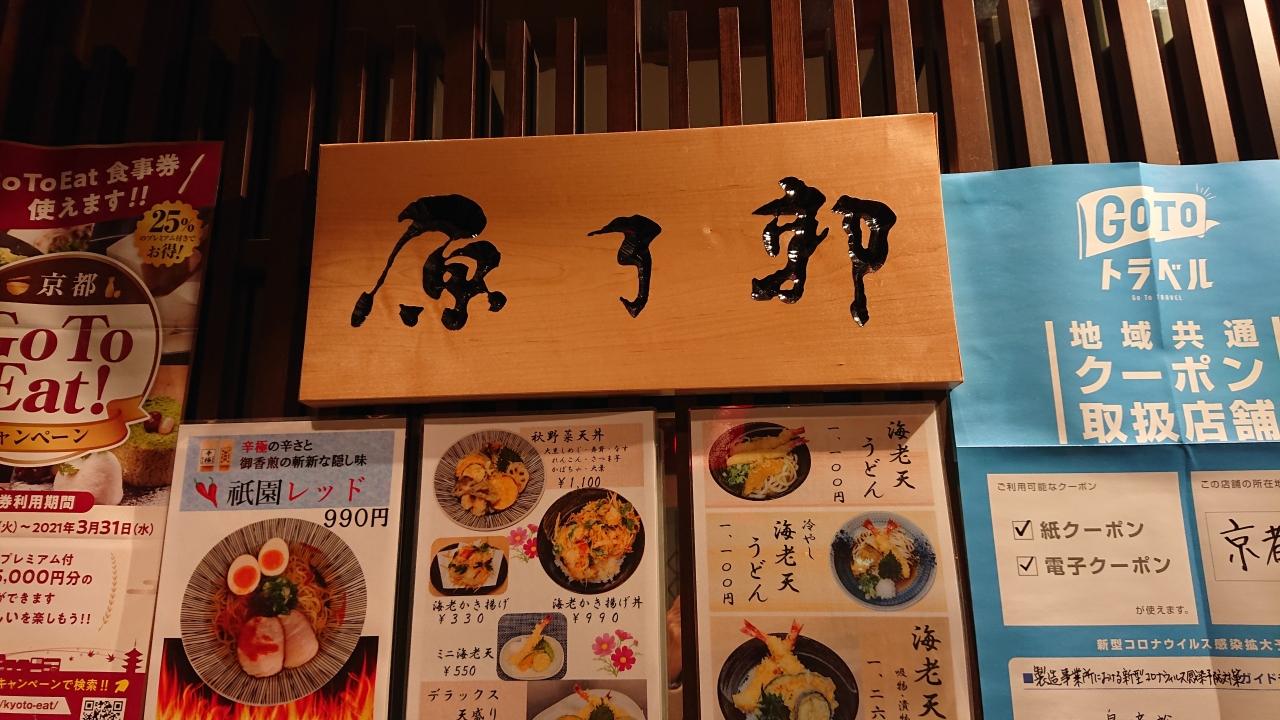 原了郭
GoToEat 食事券
使えます!!
25%
のプレミアム付きで
お得!
京都
Go To
Eat!
キャンペーン
券利用期間
(火)~2021年3月31日(水)
プレミアム付
5,000円分の
ができます
しいを楽しもう!!
キャンペーンで検索!!
/kyoto-eat/
辛極の辛さと
御香煎の斬新な隠し味
祇園レッド
990円
秋野菜天丼
大黒しめじ・舞茸・なす
れんこん・さつま芋
かぼちゃ・大葉
¥1,100
海老かき揚げ
¥330
海老かき揚げ丼
¥990
ミニ海老天
¥550
デラックス
天盛り
海老天
うどん
一、一〇〇円
冷やし
海老天
うどん
一、一〇〇円
海老天
吸物・漬物
一、二六
GOTO
トラベル
Go To TRAVEL
地域共通
クーポン
取扱店舗
ご利用可能なクーポン
紙クーポン
電子クーポン
が使えます。
この店舗の所在地
京都
新型コロナウイルス感染拡大予
製造事業所における新型コロナウイルス感染予防対策ガイド